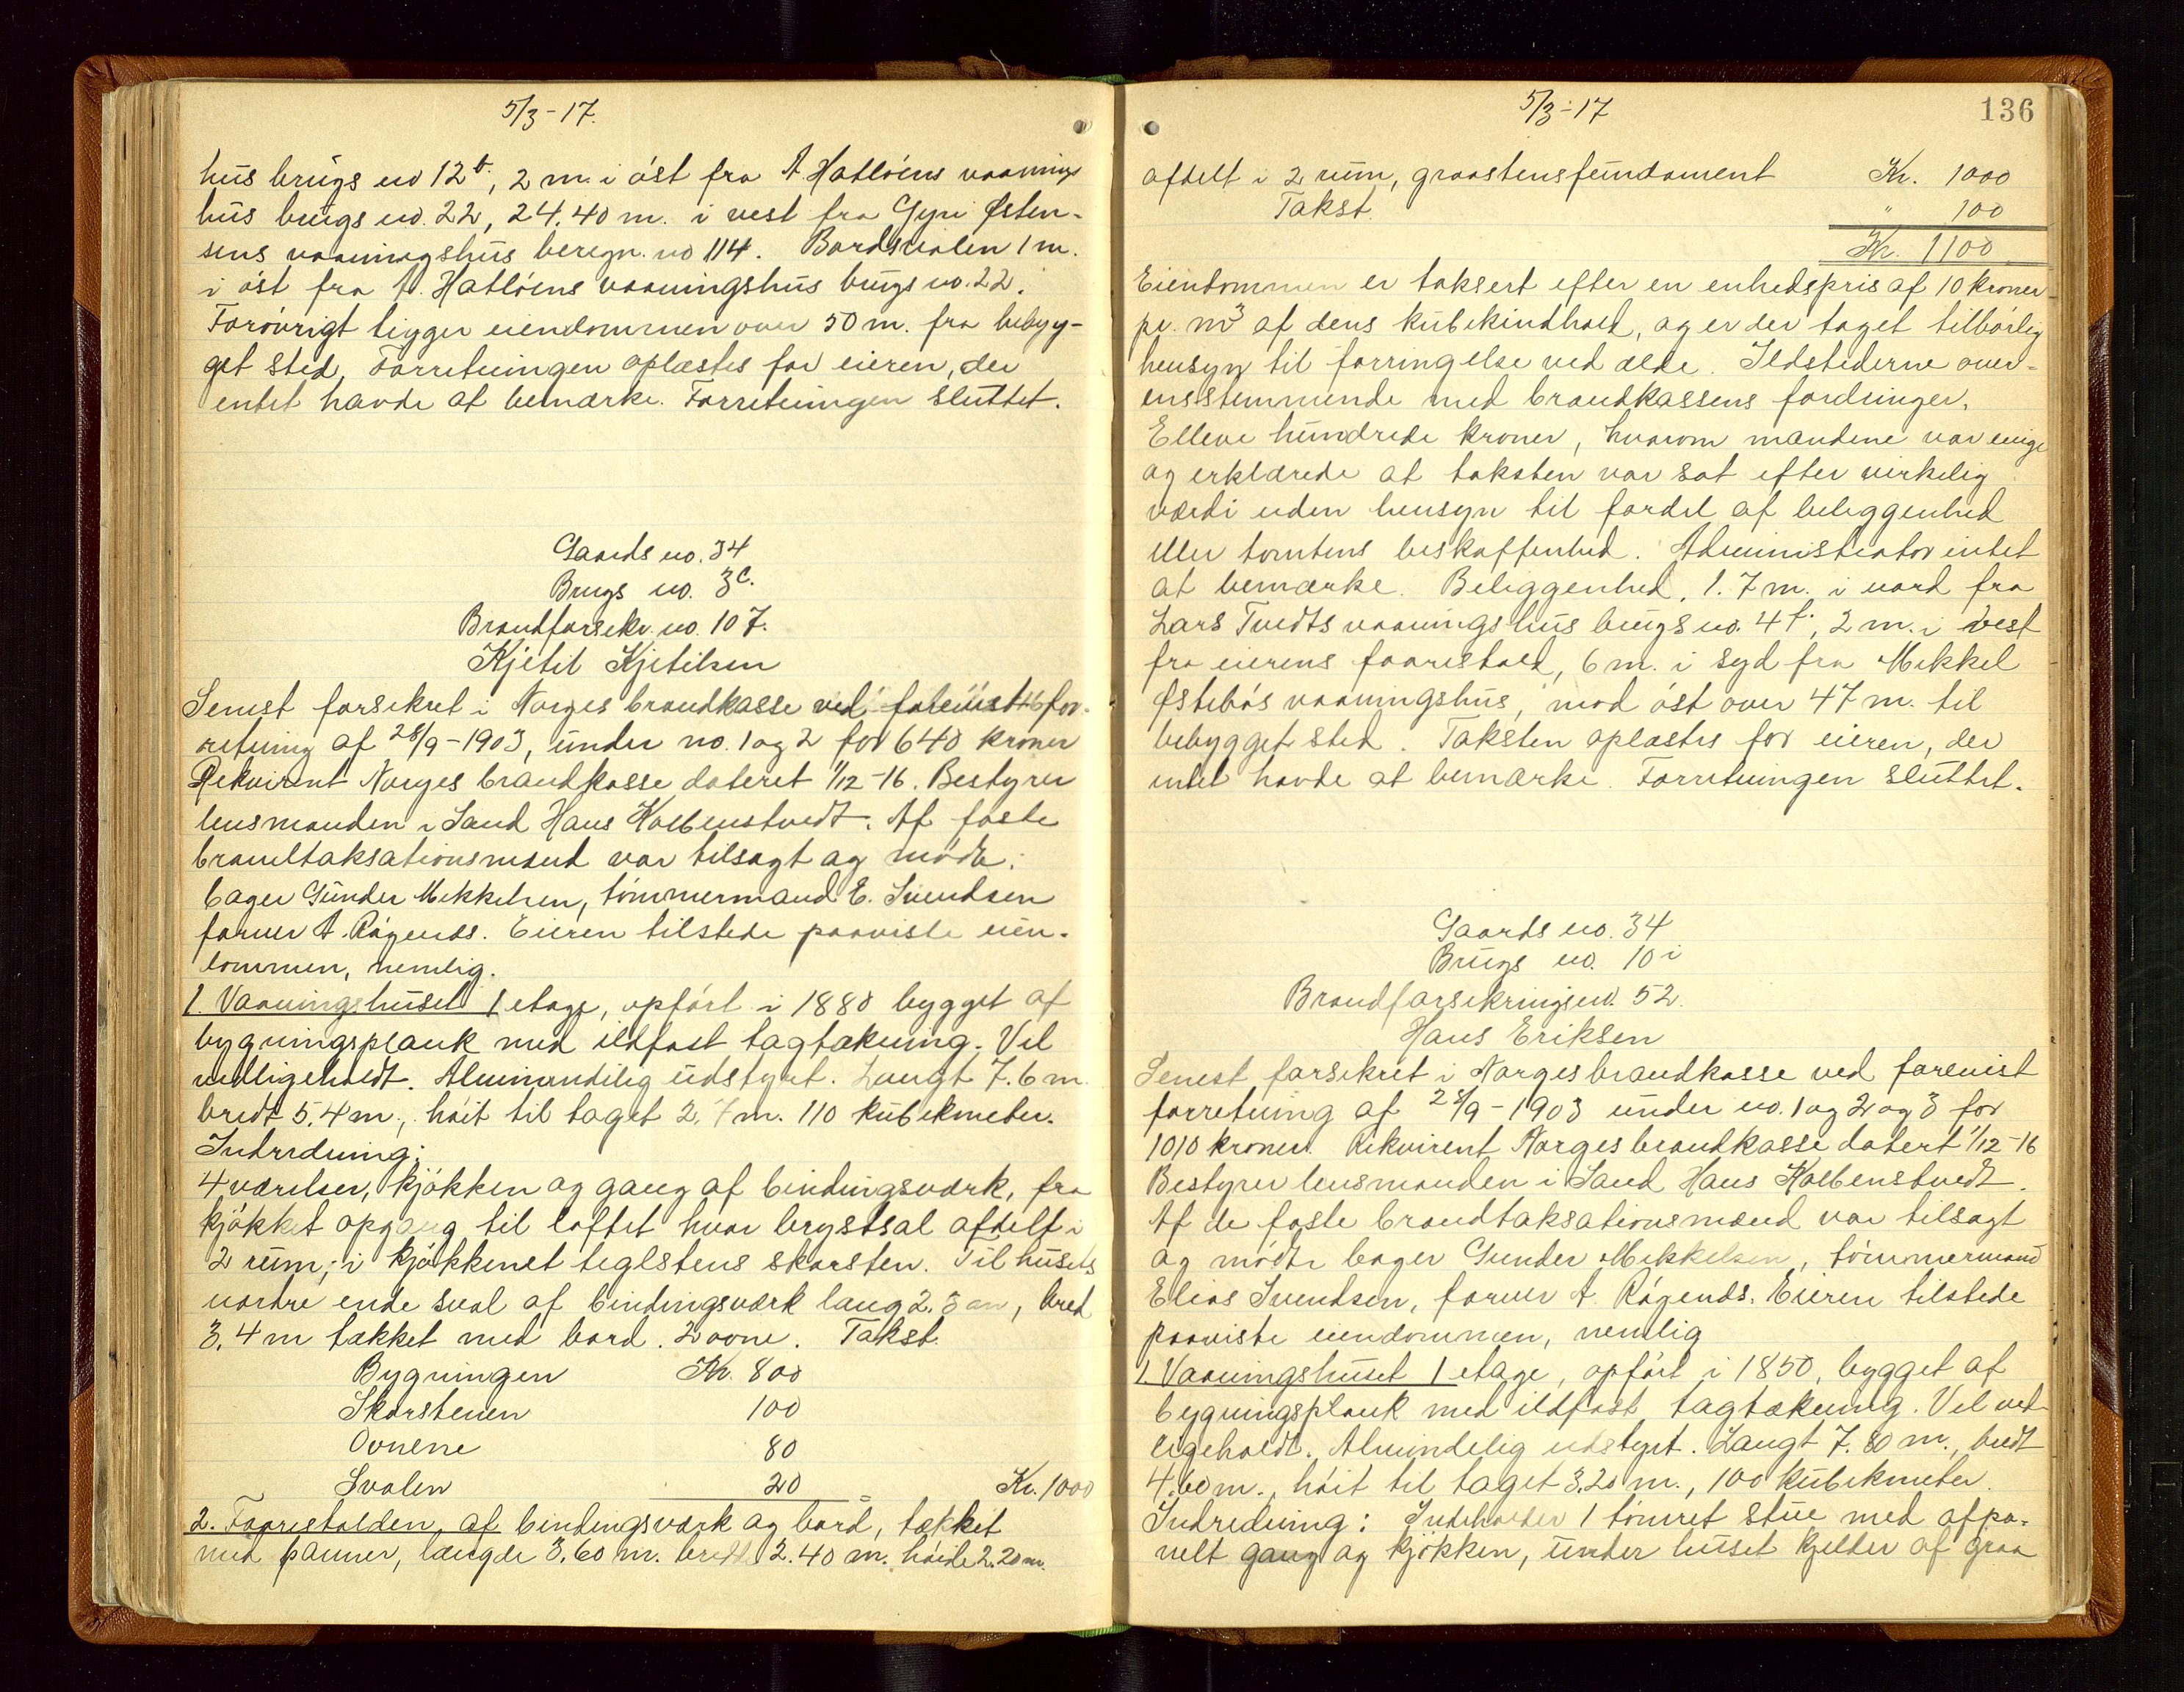 5/3-17.
hus brugs no 12b, 2 m. i øst fra A. Hatløiens vaanings
hus brugs no. 22, 24.40 m. i vest fra Gyri Østen-
sens vaaningshus beregn. no 114. Bordsvalen 1 m.
i øst fra A. Hatløiens vaaningshus brugs no. 22.
Forøvrigt ligger eiendommen over 50 m. fra bebyg-
get sted. Forretningen oplæstes for eieren, der
intet havde at bemærke. Forretningen sluttet.
Gaards no. 34
Brugs no. 3c.
Brandforsekr. no. 107.
Kjetil Kjetilsen
Senest forsikret i Norges brandkasse ved for-
retning af 28/9-1903, under no. 1 og 2 for 640 kroner
Rekvirent Norges brandkasse dateret 1/12-16. Bestyrer
lensmanden i Sand Hans Kolbenstvedt. Af faste
brandtaksationsmænd var tilsagt og mødte:
bager Gunder Mikkelsen, tømmermand E. Svendsen
farver A. Røgenes. Eieren tilstede paaviste eien-
dommen, nemlig.
1. Vaaningshuset 1 etage, opført i 1880 bygget af
bygningsplank med ildfast tagtækning. Vel
vedligeholdt. Almindelig udstyret. Langt 7.6 m.
bredt 5.4 m., høit til taget 2.7 m. 110 kubikmeter.
Indredning:
4 værelser, kjøkken og gang af bindingsværk, fra
kjøkket opgang til loftet hvor brystsal afdelt i
2 rum; i kjøkkenet teglstens skorsten. Til husets
nordre ende sval af bindingsværk lang 2.3 m, bred
3.4 m tækket med bord. 2 ovne. Takst.
Bygningen Kr. 800
Skorstenen 100
Ovnene 80
Svalen 20 = Kr. 1000
2. Faarestalden, af bindingsværk og bord, tækket
med panner, længde 3.60 m. bredde 2.40 m. høide 2.20 m.
5/3-17
136
afdelt i 2 rum, graastensfundament Kr. 1000
Takst. " 100
Kr. 1100
Eiendommen er taksert efter en enhedspris af 10 kroner
pr. m3 af dens kubikindhold, og er der taget tilbørlig
hensyn til forringelse ved ælde. Ildstederne over-
ensstemmende med brandkassens fordringer.
Elleve hundrede kroner, hvorom mændene var enige
og erklærede at taksten var sat efter virkelig
værdi uden hensyn til fordel af beliggenhed
eller tomtens beskaffenhed. Administrator intet
at bemærke. Beliggenhed. 1.7 m. i nord fra
Lars Tvedts vaaningshus brugs no. 4f., 2 m. i vest
fra eierens faarestald, 6 m. i syd fra Mikkel
Østebøs vaaningshus, mod øst over 47 m. til
bebygget sted. Taksten oplæstes for eieren, der
intet havde at bemærke. Forretningen sluttet.
Gaards no. 34
Brugs no. 10 i
Brandforsekringsno. 52.
Hans Eriksen
Senest forsikret i Norges brandkasse ved forenist
forretning af 28/9-1903 under no. 1 og 2 og 3 for
1010 kroner. Rekvirent Norges brandkasse datert 1/12-16
Bestyrer lensmanden i Sand Hans Kolbenstvedt.
Af de faste brandtaksationsmænd var tilsagt
og mødte bager Gunder Mikkelsen, tømmermand
Elias Svendsen, farver A. Røgenes. Eieren tilstede
paaviste eiendommen, nemlig
1. Vaaningshuset 1 etage, opført i 1850, bygget af
bygningsplank med ildfast tagtækning. Vel ved-
ligeholdt. Almindelig udstyrt. Langt 7.80 m., bredt
4.60 m., høit til taget 3.20 m., 100 kubikmeter.
Indredning: Indeholder 1 tømret stue med afpa-
nelt gang og kjøkken, under huset kjelder af graa